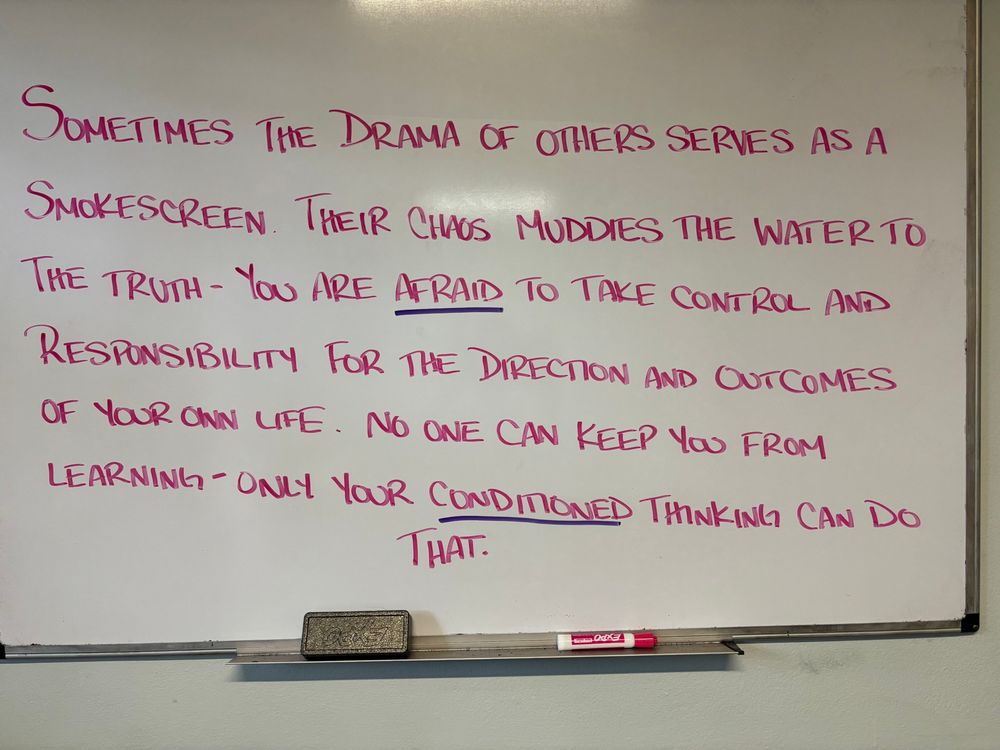 SOMETIMES THE DRAMA OF OTHERS SERVES AS A
SMOKESCREEN. THEIR CHAOS MUDDIES THE WATER TO
THE TRUTH - YOU ARE AFRAID TO TAKE CONTROL AND
RESPONSIBILITY FOR THE DIRECTION AND OUTCOMES
OF YOUR OWN LIFE. NO ONE CAN KEEP YOU FROM
LEARNING - ONLY YOUR CONDITIONED THINKING CAN DO
THAT.
EXPO
EXPO